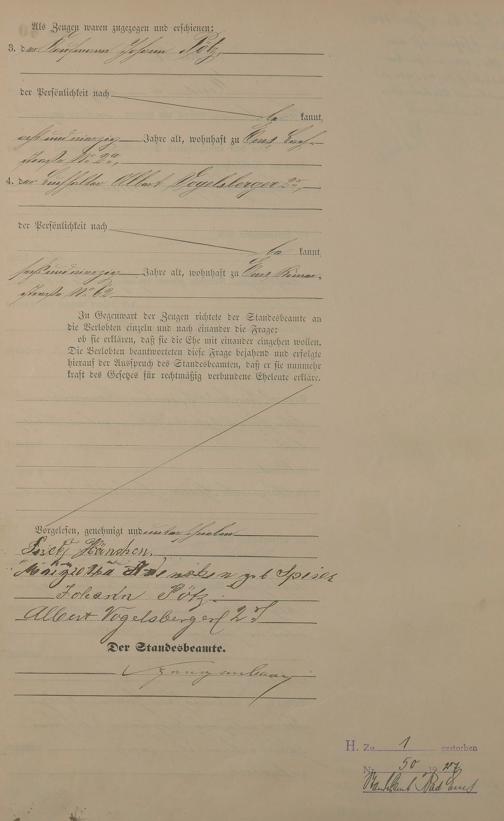 Als Zeugen waren zugezogen und erschienen:
3. der Kaufmann Johann Pötz
der Persönlichkeit nach
be kannt,
Jahre alt, wohnhaft zu Ems,
straße No 2a,
4. der Buchhalter Albert Vogelsberger 2r,
der Persönlichkeit nach
be kannt,
sechsundzwanzig Jahre alt, wohnhaft zu Ems Römer-
straße No 62
In Gegenwart der Zeugen richtete der Standesbeamte an
die Verlobten einzeln und nach einander die Frage:
ob sie erklären, daß sie die Ehe mit einander eingehen wollen.
Die Verlobten beantworteten diese Frage bejahend und erfolgte
hierauf der Ausspruch des Standesbeamten, daß er sie nunmehr
kraft des Gesetzes für rechtmäßig verbundene Eheleute erkläre.
Vorgelesen, genehmigt und unterschrieben
Josef Hänchen.
Margretha Hänchen geb Speier
Johann Pötz.
Albert Vogelsberger 2 J
Der Standesbeamte.
H. Zu 1 gestorben
Nr. 50 19
Standesamt Bad Ems